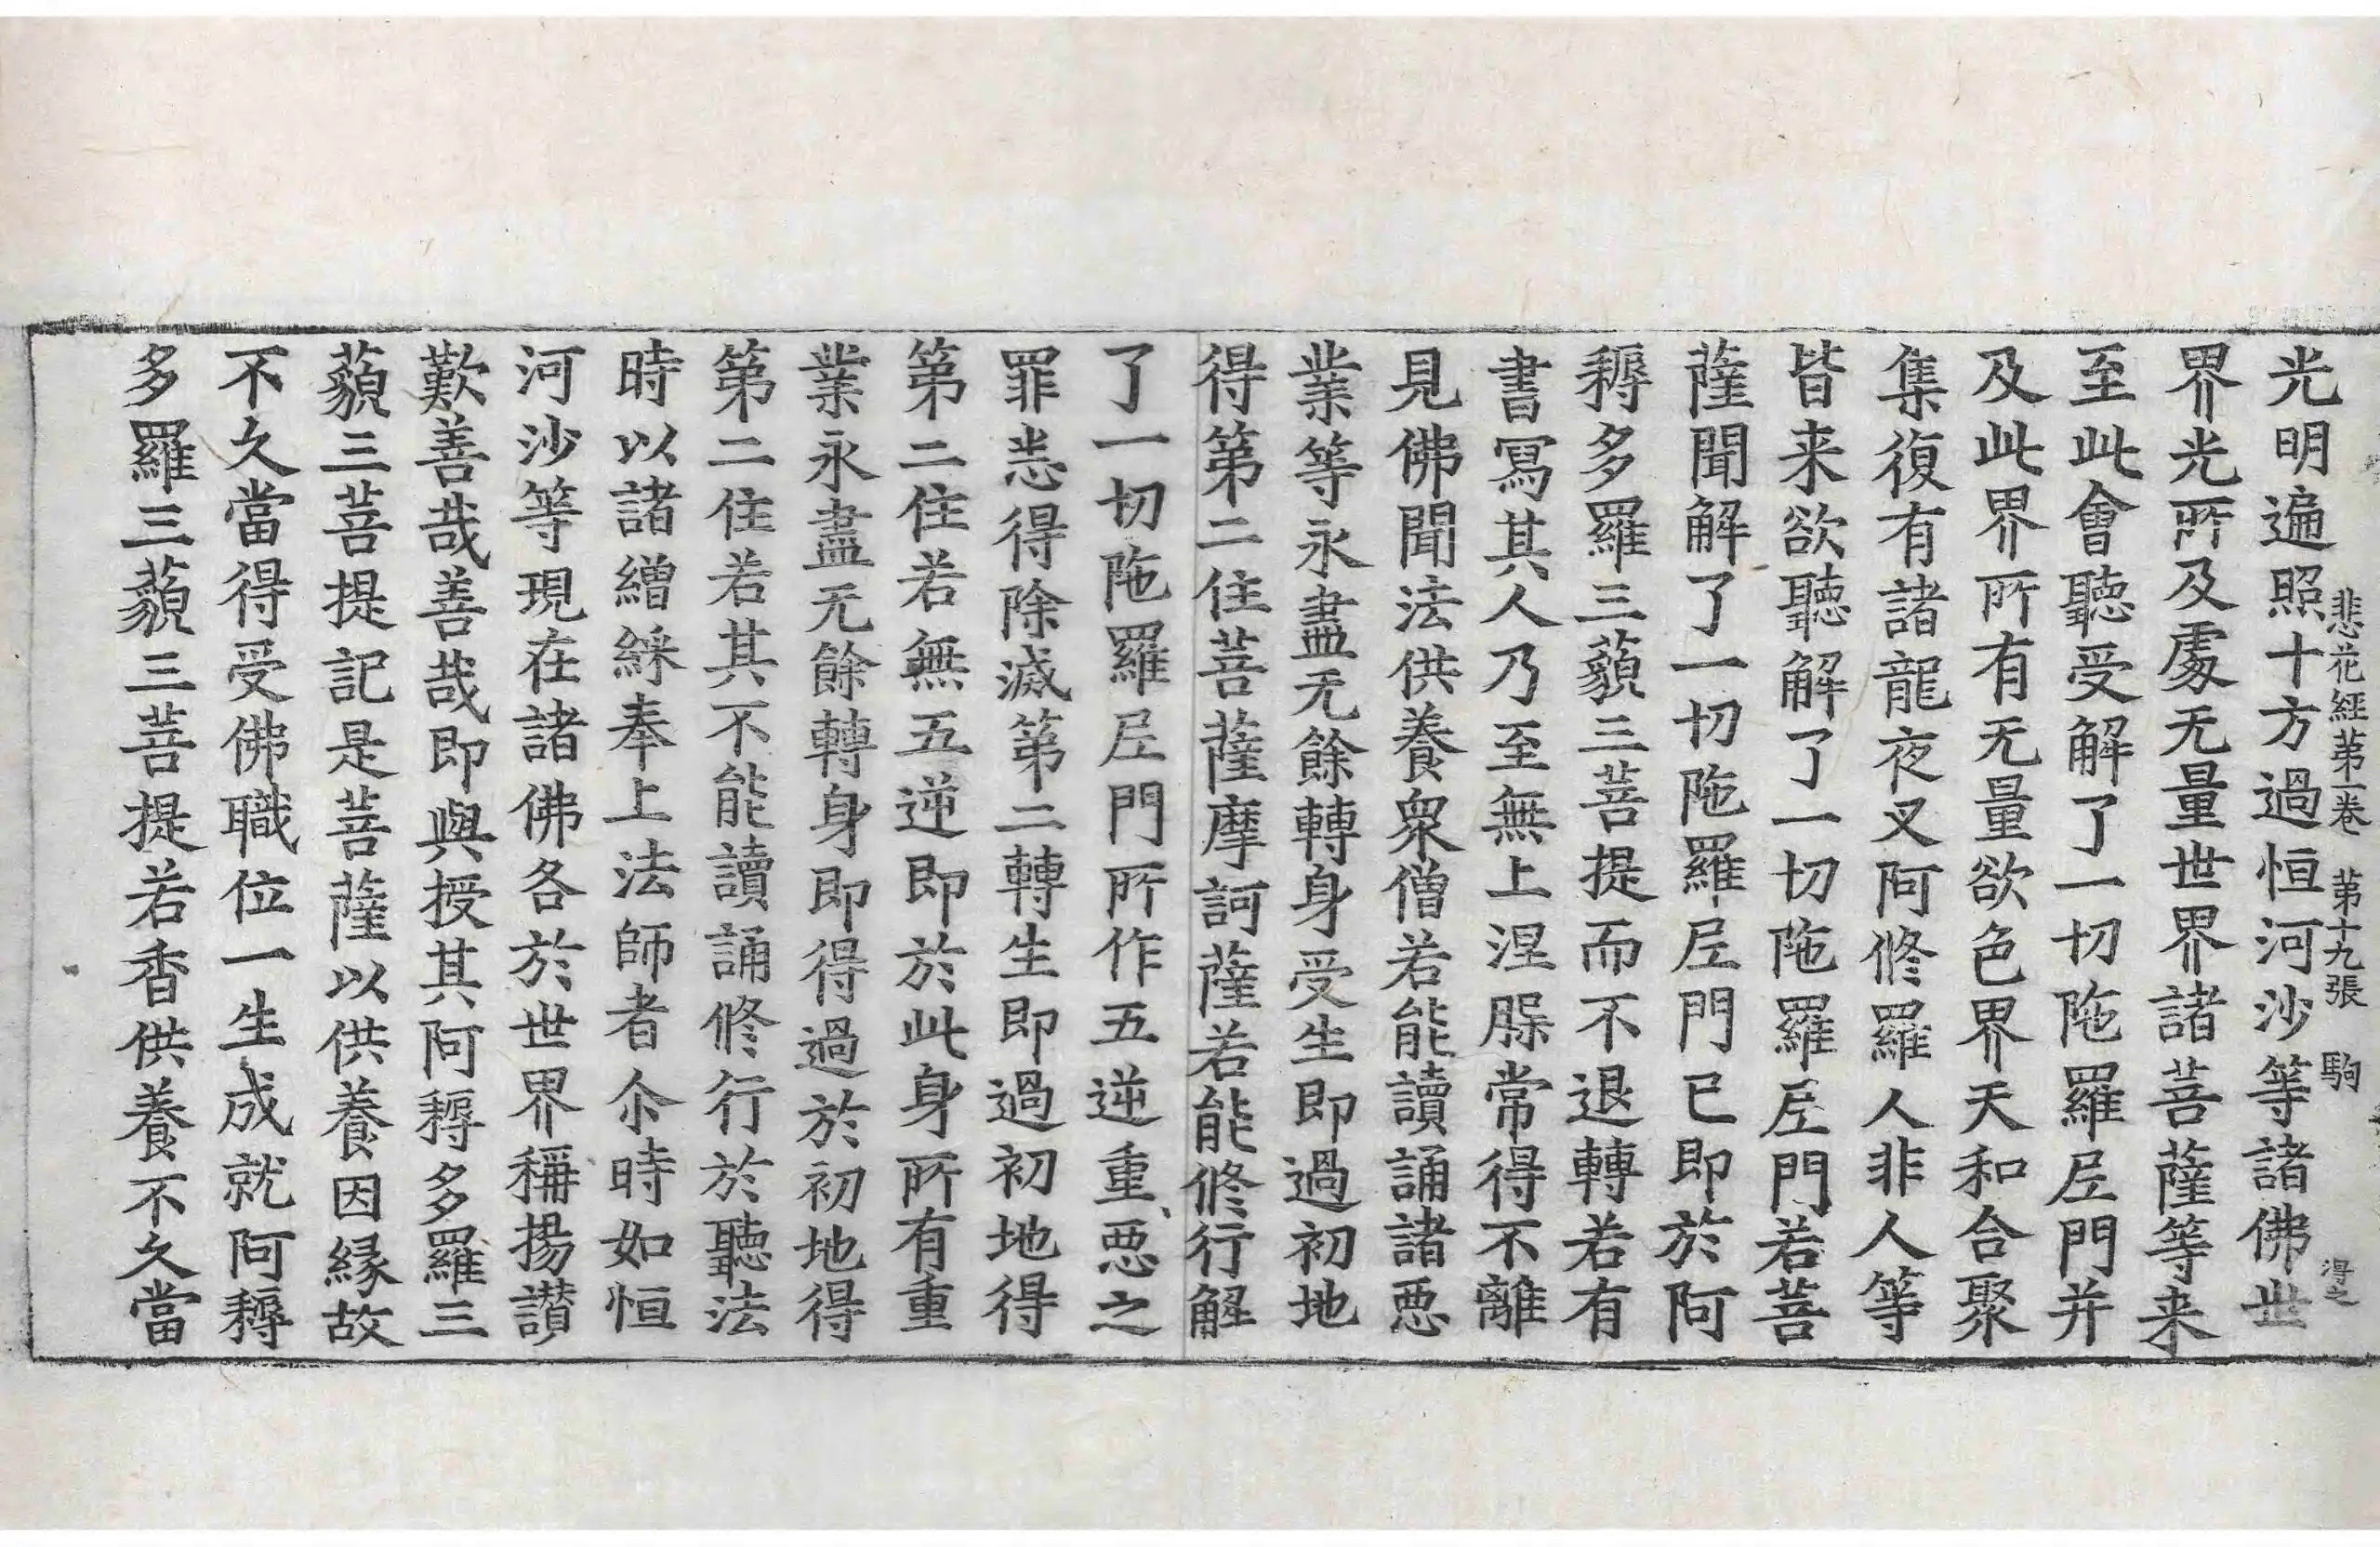 悲花經第一卷 第十九張 駒 得之
光明遍照十方過恒河沙等諸佛世
界光所及處无量世界諸菩薩等来
至此會聽受解了一切陁羅𡰱門并
及此界所有无量欲色界天和合聚
集復有諸龍夜叉阿修羅人非人等
皆来欲聽解了一切陁羅𡰱門若菩
薩聞解了一切陁羅𡰱門已即於阿
耨多羅三藐三菩提而不退轉若有
書寫其人乃至無上涅槃常得不離
見佛聞法供養衆僧若能讀誦諸惡
業等永盡无餘轉身受生即過初地
得第二住菩薩摩訶薩若能修行解
了一切陁羅𡰱門所作五逆重惡之
罪悉得除滅第二轉生即過初地得
第二住若無五逆即於此身所有重
業永盡无餘轉身即得過於初地得
第二住若其不能讀誦修行於聽法
時以諸繒綵奉上法師者尒時如恒
河沙等現在諸佛各於世界稱揚讃
歎善哉善哉即與授其阿耨多羅三
藐三菩提記是菩薩以供養因縁故
不久當得受佛職位一生成就阿耨
多羅三藐三菩提若香供養不久當